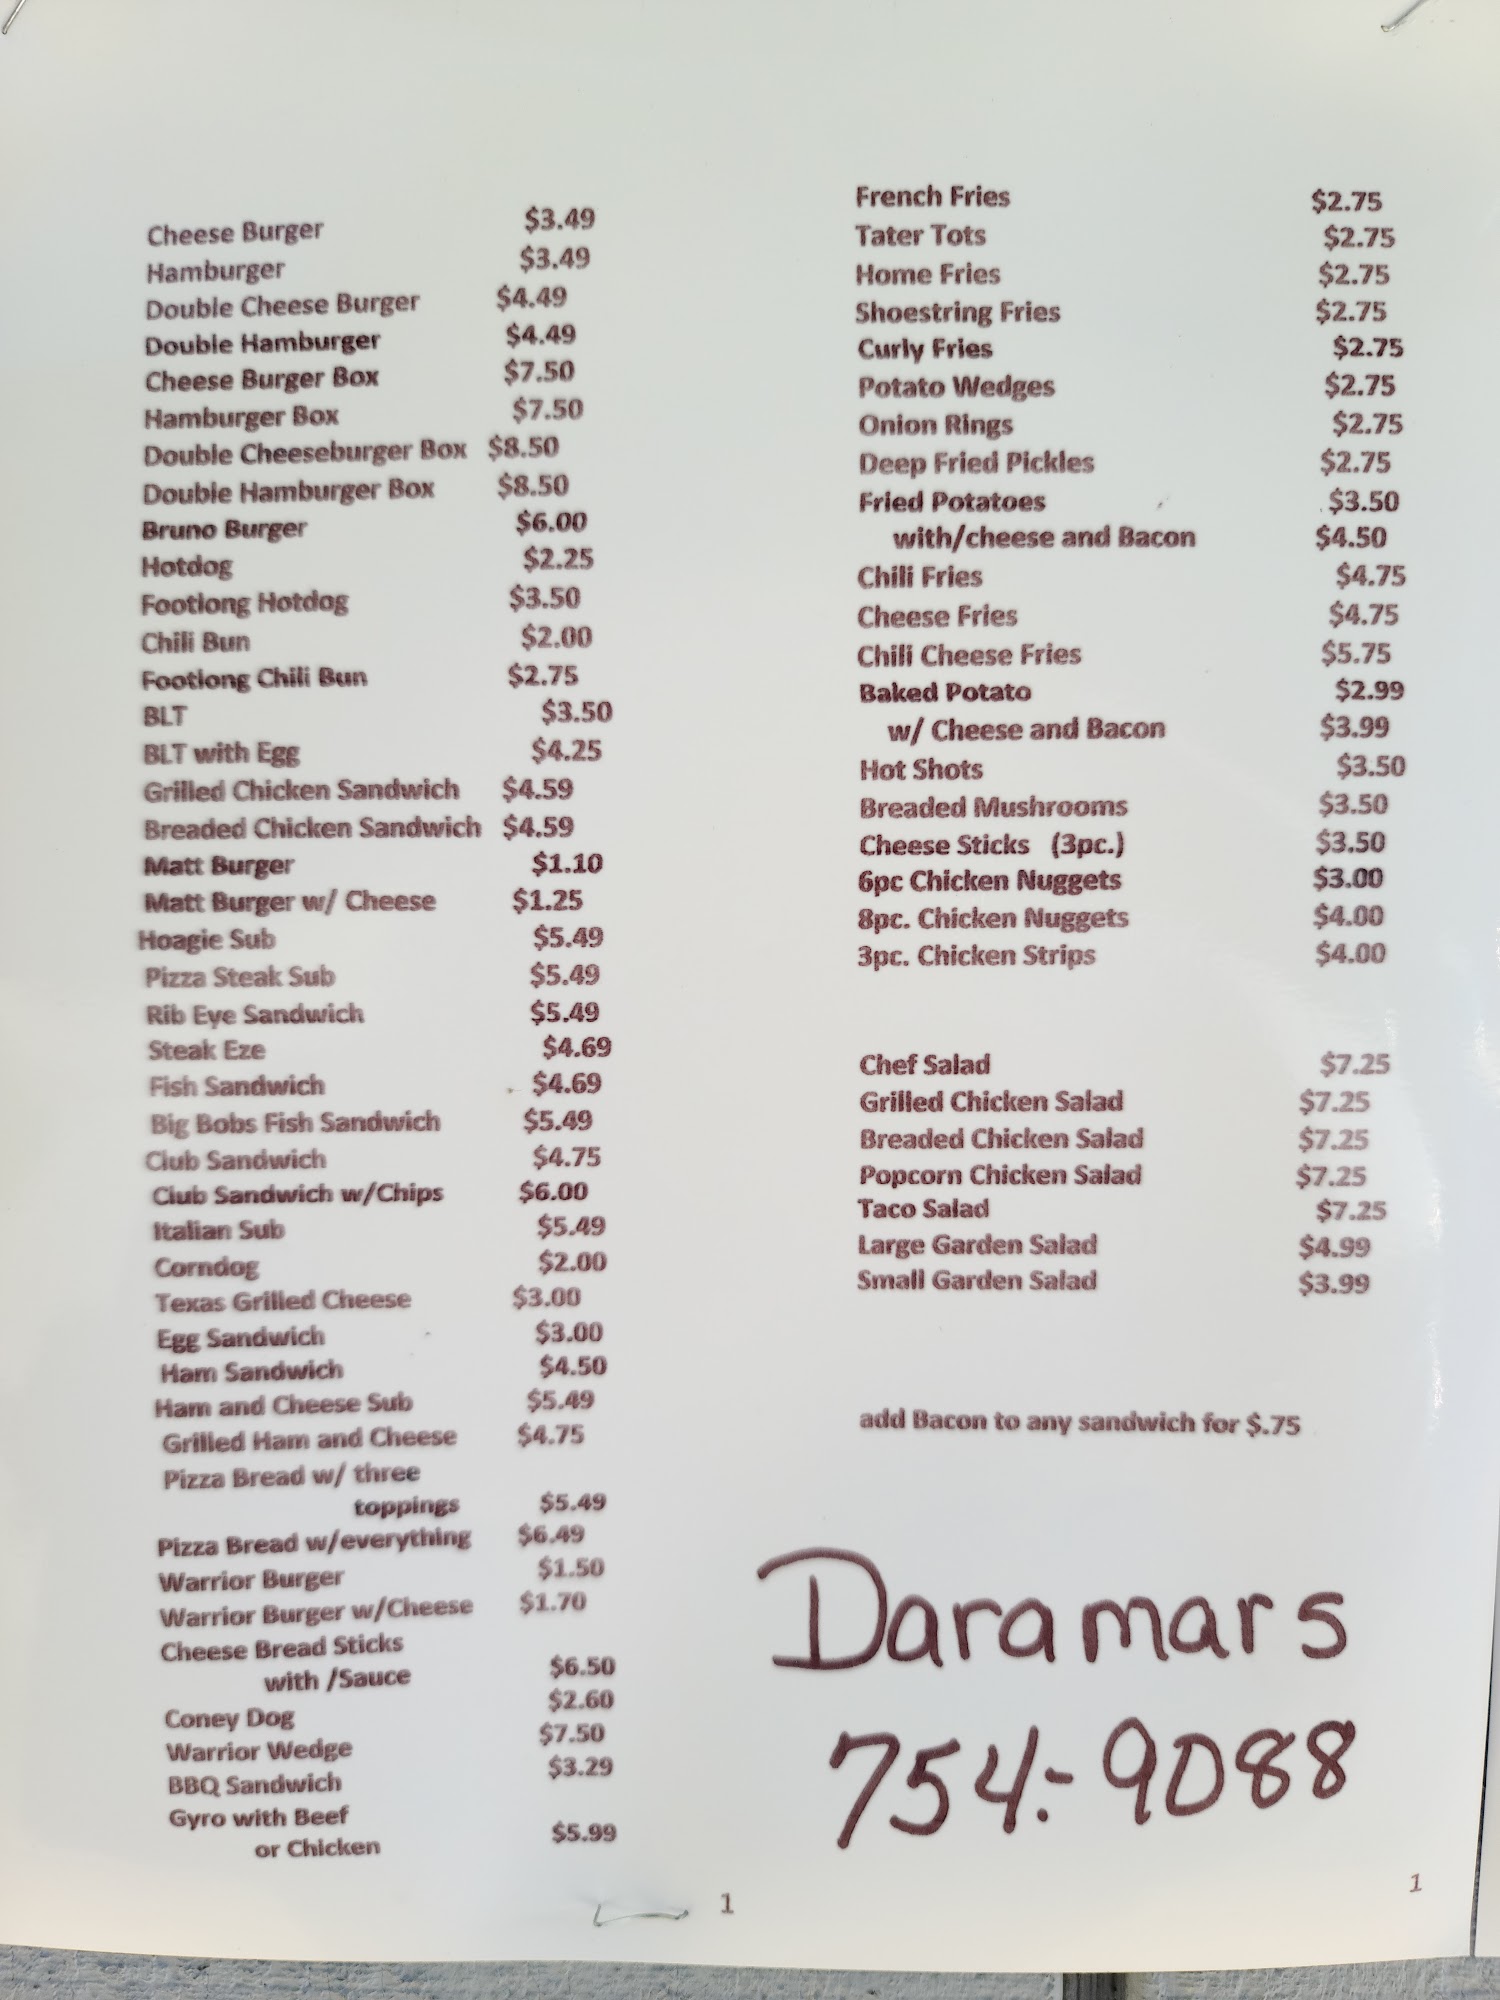 Cheese Burger $3.49
Hamburger $3.49
Double Cheese Burger $4.49
Double Hamburger $4.49
Cheese Burger Box $7.50
Hamburger Box $7.50
Double Cheeseburger Box $8.50
Double Hamburger Box $8.50
Bruno Burger $6.00
Hotdog $2.25
Footlong Hotdog $3.50
Chili Bun $2.00
Footlong Chili Bun $2.75
BLT $3.50
BLT with Egg $4.25
Grilled Chicken Sandwich $4.59
Breaded Chicken Sandwich $4.59
Matt Burger $1.10
Matt Burger w/ Cheese $1.25
Hoagie Sub $5.49
Pizza Steak Sub $5.49
Rib Eye Sandwich $5.49
Steak Eze $4.69
Fish Sandwich $4.69
Big Bobs Fish Sandwich $5.49
Club Sandwich $4.75
Club Sandwich w/Chips $6.00
Italian Sub $5.49
Corndog $2.00
Texas Grilled Cheese $3.00
Egg Sandwich $3.00
Ham Sandwich $4.50
Ham and Cheese Sub $5.49
Grilled Ham and Cheese $4.75
Pizza Bread w/ three
toppings $5.49
Pizza Bread w/everything $6.49
Warrior Burger $1.50
Warrior Burger w/Cheese $1.70
Cheese Bread Sticks
with /Sauce $6.50
Coney Dog $2.60
Warrior Wedge $7.50
BBQ Sandwich $3.29
Gyro with Beef
or Chicken $5.99
1
French Fries $2.75
Tater Tots $2.75
Home Fries $2.75
Shoestring Fries $2.75
Curly Fries $2.75
Potato Wedges $2.75
Onion Rings $2.75
Deep Fried Pickles $2.75
Fried Potatoes $3.50
with/cheese and Bacon $4.50
Chili Fries $4.75
Cheese Fries $4.75
Chili Cheese Fries $5.75
Baked Potato $2.99
w/ Cheese and Bacon $3.99
Hot Shots $3.50
Breaded Mushrooms $3.50
Cheese Sticks (3pc.) $3.50
6pc Chicken Nuggets $3.00
8pc. Chicken Nuggets $4.00
3pc. Chicken Strips $4.00
Chef Salad $7.25
Grilled Chicken Salad $7.25
Breaded Chicken Salad $7.25
Popcorn Chicken Salad $7.25
Taco Salad $7.25
Large Garden Salad $4.99
Small Garden Salad $3.99
add Bacon to any sandwich for $.75
Daramars
754-9088
1